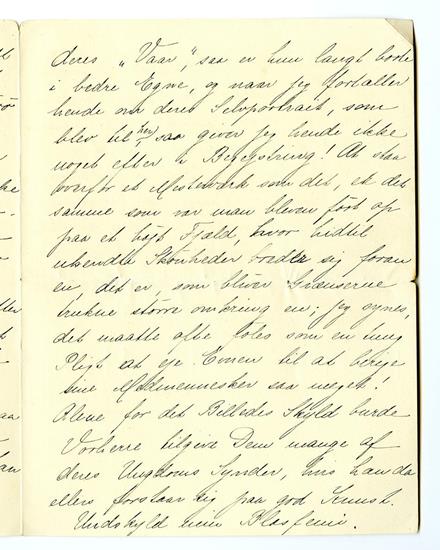 deres „Vaar", saa er hun langt borte
i bedre Egne, og naar jeg fortæller
hende om deres Selvportrait, som
blev til her, saa giver jeg hende ikke
noget efter i Begejstring! At staa
overfor et Mesterværk som det, er det
samme som var man bleven ført op
paa et højt Fjæld, hvor hidtil
ukendte Skønheder bredte sig foran
en, det er, som bliver Grænserne
trukne større omkring en; jeg synes,
det maatte ofte føles som en tung
Pligt at eje Evnen til at berige
sine Medmennesker saa meget!
Alene for det Billedes Skyld burde
Vorherre tilgive Dem mange af
deres Ungdoms Synder, hvis han da
ellers forstaar sig paa god Kunst.
Undskyld min Blasfemi.